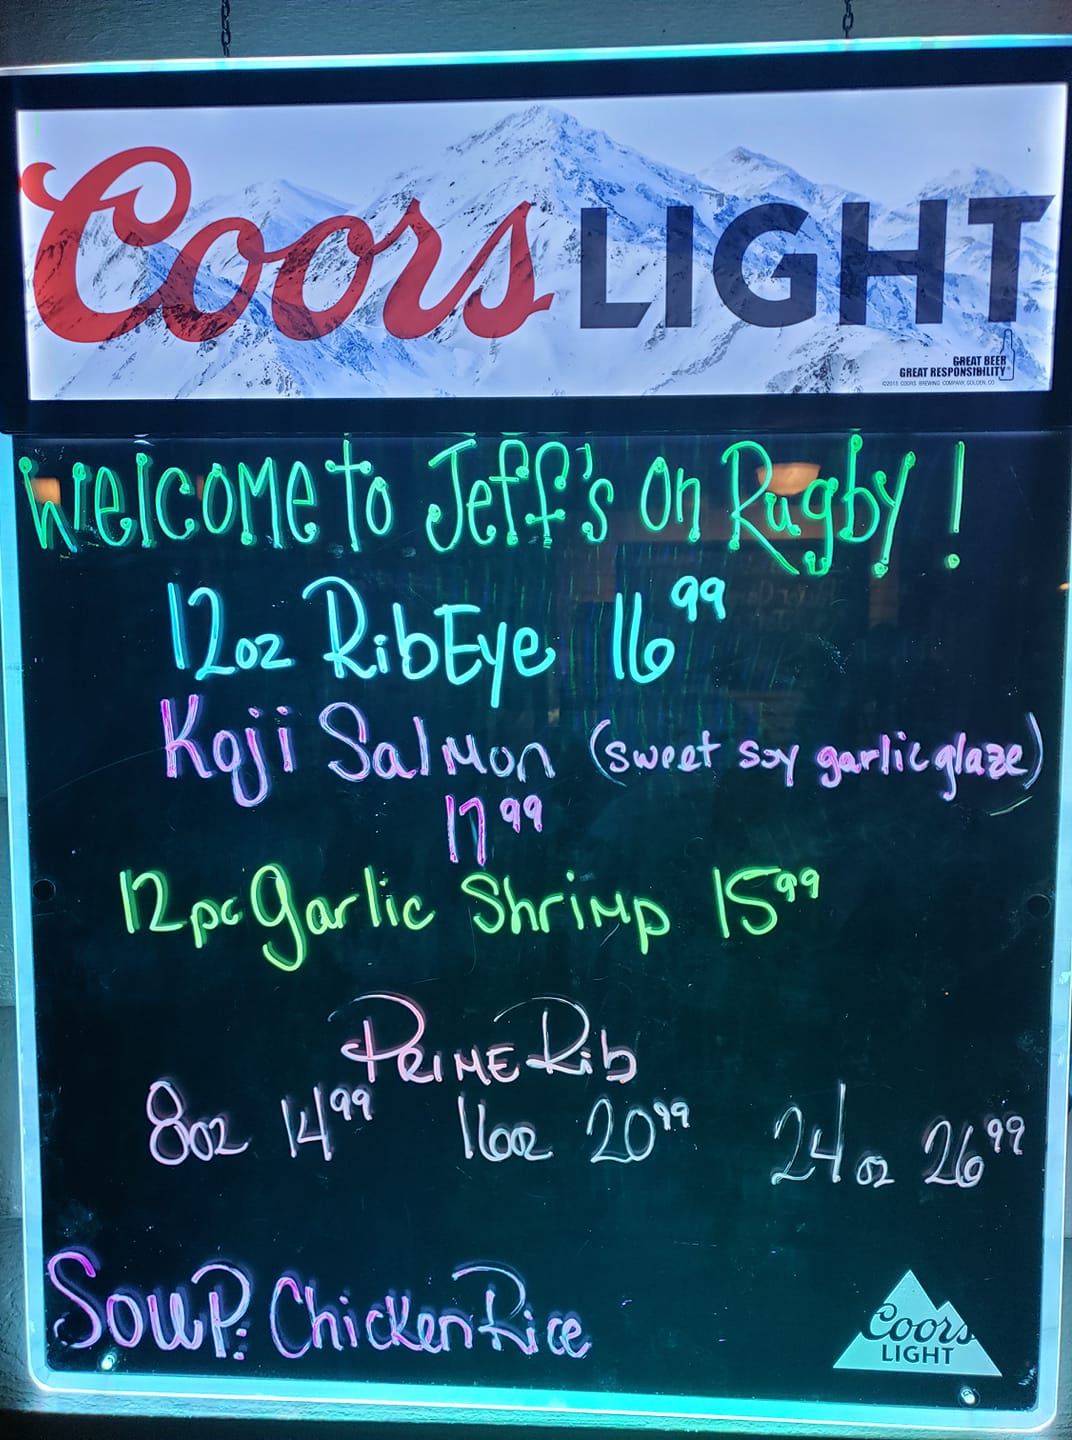 Coors LIGHT
GREAT BEER
GREAT RESPONSIBILITY®
©2015 COORS BREWING COMPANY, GOLDEN, CO
Welcome to Jeff's On Rugby!
12oz RibEye 16 99
Koji Salmon (sweet soy garlic glaze)
17 99
12pc Garlic Shrimp 15 99
PRIME Rib
8oz 14 99 16oz 20 99 24oz 26 99
Soup: Chicken Rice
Coors
LIGHT